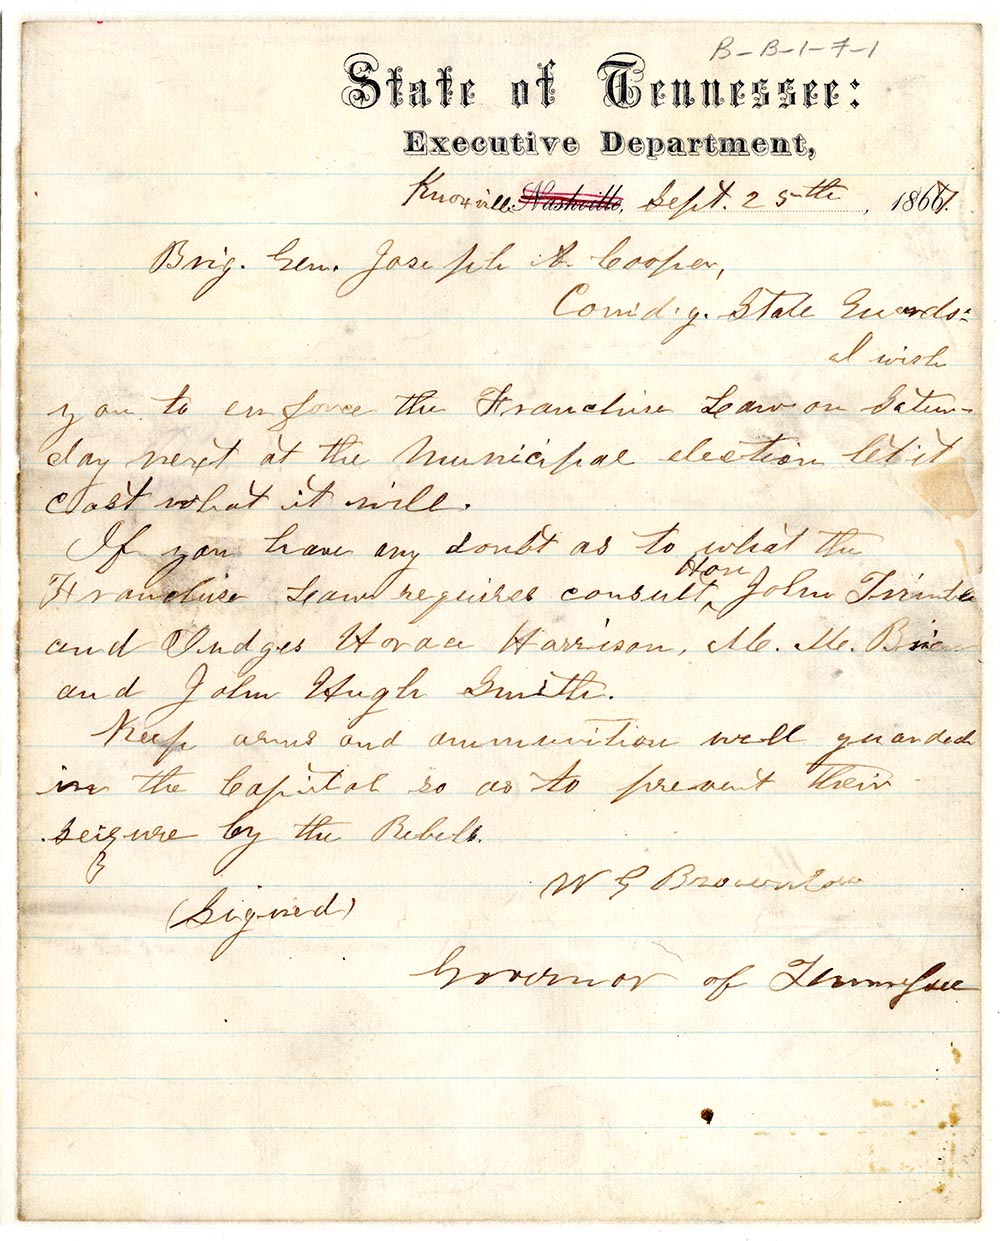 B-B-1-7-1
State of Tennessee:
Executive Department,
Knoxville Nashville, Sept. 25th, 1867.
Brig. Gen. Joseph A. Cooper,
Comd'g. State Guards:
I wish
you to enforce the Franchise Law on Satur-
day next at the Municipal election let it
cost what it will.
If you have any doubt as to what the
Hon
Franchise Law requires consult John Trimble
and Judges Horace Harrison, M. M. Brien
and John Hugh Smith.
Keep arms and ammunition well guarded
in the Capitol so as to prevent their
seizure by the Rebels.
W G Brownlow
(Signed)
Governor of Tennessee